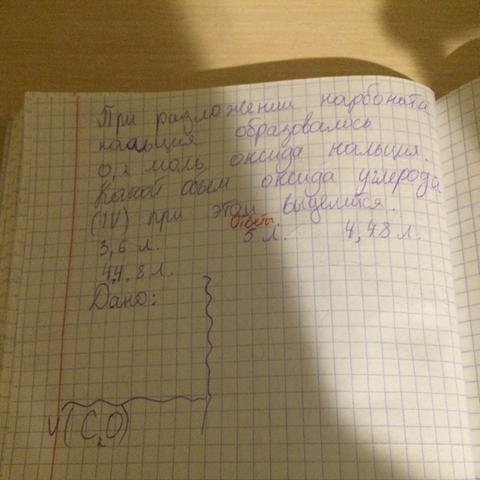 При разложении карбоната
кальция образовалось
0,2 моль оксида кальция.
Какой объем оксида углерода
(IV) при этом выделится.
Ответы
3,6 л. 5 л. 4,48 л.
44,8 л.
Дано:
V(C₂O)